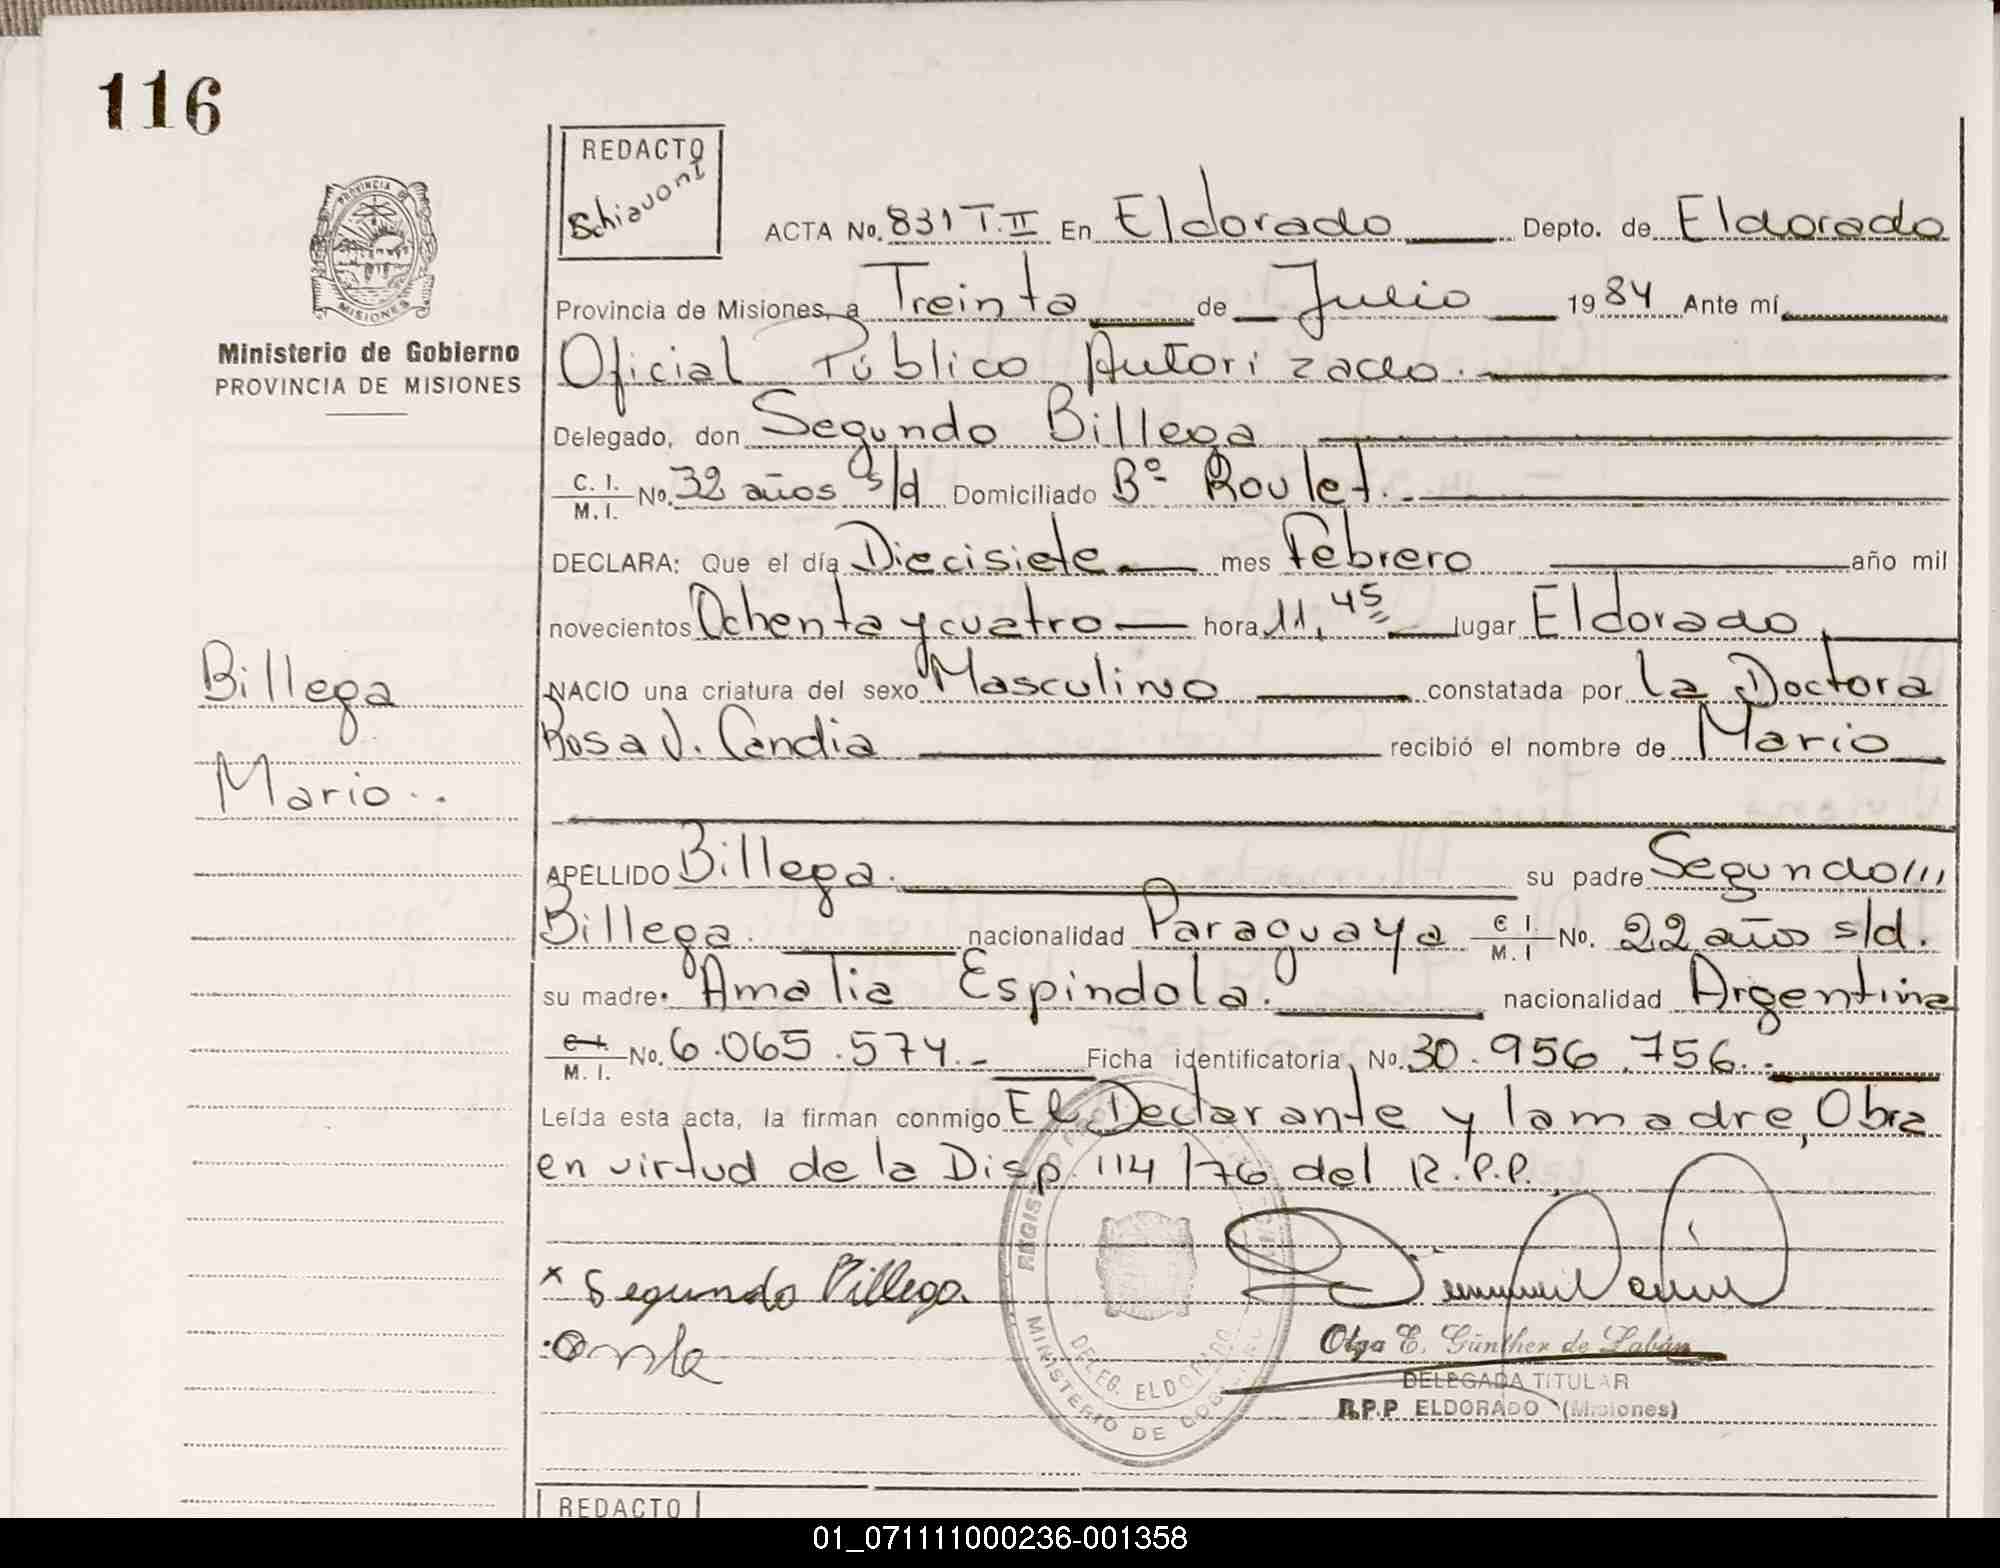 116
REDACTO
Schiavoni
PROVINCIA
MISIONES
Ministerio de Gobierno
PROVINCIA DE MISIONES
ACTA No. 831 T.II En Eldorado Depto. de Eldorado
Provincia de Misiones, a Treinta de Julio 1984 Ante mí
Oficial Público Autorizado.
Delegado, don Segundo Billega
C. I. M. I. No. 32 años s/d Domiciliado Bº Roulet.
DECLARA: Que el día Diecisiete mes Febrero año mil
novecientos Ochenta y cuatro hora 11,45 lugar Eldorado
NACIO una criatura del sexo Masculino constatada por la Doctora
Rosa V. Candia recibió el nombre de Mario
Billega
Mario
APELLIDO Billega. su padre Segundo
Billega. nacionalidad Paraguaya C I M. I No. 22 años s/d.
su madre. Amalia Espindola. nacionalidad Argentina
C. I. M. I. No. 6.065.574.- Ficha identificatoria No. 30.956.756.
Leída esta acta, la firman conmigo El Declarante y la madre, Obra
en virtud de la Disp 114/76 del R.P.P.
x Segundo Billega
Olga E. Günther de Labán
DELEGADA TITULAR
R.P.P ELDORADO (Misiones)
DELEG. ELDORADO
MINISTERIO DE GOBIERNO
REDACTO
01_071111000236-001358